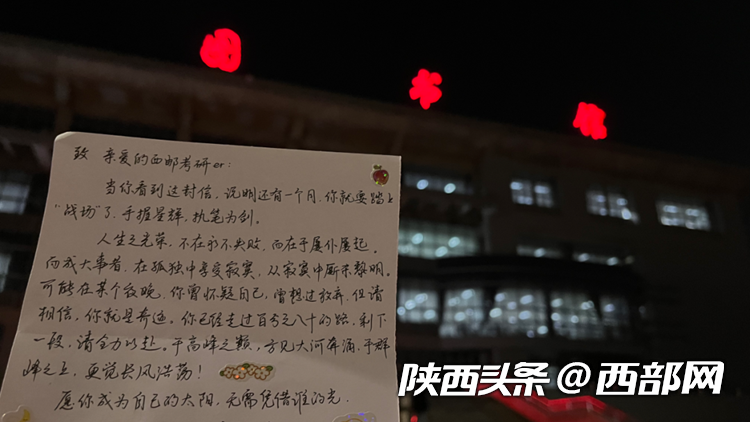 图书馆
致 亲爱的西邮考研er：
当你看到这封信，说明还有一个月，你就要踏上
“战场”了，手握星辉，执笔为剑。
人生之光荣，不在永不失败，而在于屡仆屡起。
向成大事者，在孤独中享受寂寞，从寂寞中断来黎明。
可能在某个夜晚，你曾怀疑自己，曾想过放弃，但请
相信，你就是奇迹。你已经走过百分之八十的路，剩下
一段，请全力以赴。于高峰之巅，方见大河奔涌，于群
峰之上，更觉长风浩荡！
愿你成为自己的太阳，无需凭借谁的光。
陕西头条@西部网